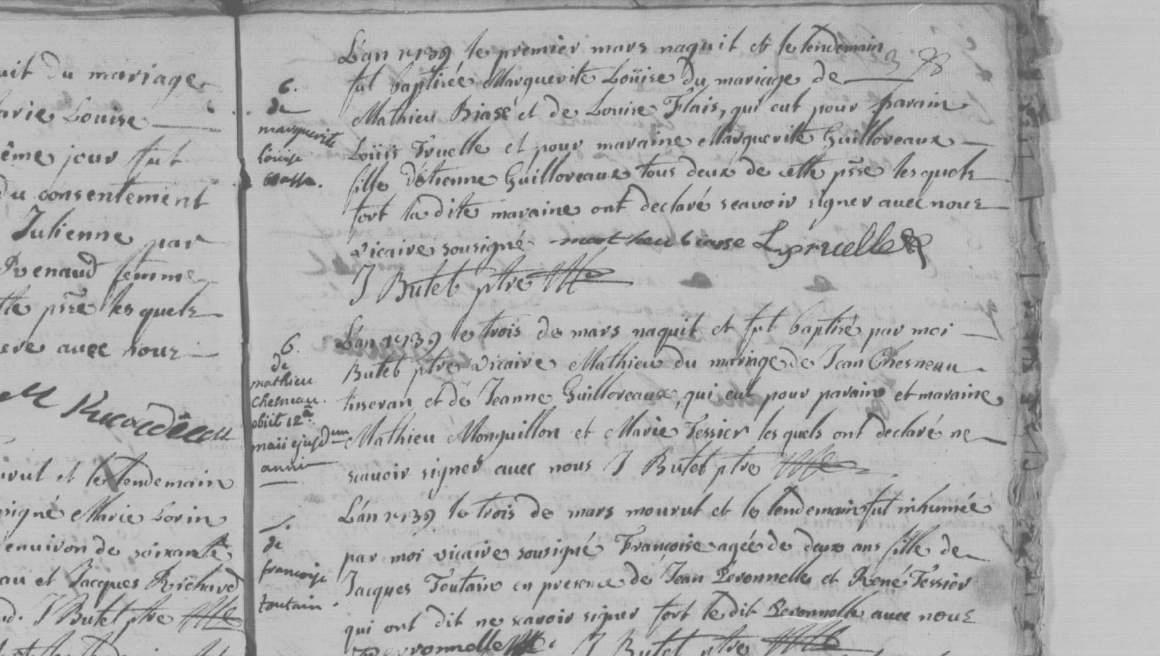 uit du mariage
arie Louise
ême jour fut
du consentement
Julienne par
Renaud femme
lle psse les quels
avec nous
urut et le lendemain
signé Marie Lorin
environ de soixante
au et Jacques Richard
J Butet ptre
398
6.
de
marguerite
louise
biasse.
L'an 1739 le premier mars naquit et le lendemain
fut baptisée Marguerite Loüise du mariage de
Mathieu Biasé et de Louise Flais, qui eut pour parain
Loüis Truelle et pour maraine Marguerite Guilloreaux
fille d'étienne Guilloreaux tous deux de cette psse les quels
fort la dite maraine ont declaré scavoir signer avec nous
vicaire sousigné mathieu biasse L truelle
J Butet ptre
6.
de
mathieu
Chesneau.
obiit 12a
maii ejusdum
anni
L'an 1739 le trois de mars naquit et fut baptisé par moi
Butet ptre vicaire Mathieu du mariage de Jean Chesneau
tisseran et de Jeanne Guilloreaux, qui eut pour parain et maraine
Mathieu Monguillon et Marie Tessier les quels ont declaré ne
scavoir signer avec nous J Butet ptre
1.
de
françoise
toutain.
L'an 1739 le trois de mars mourut et le lendemain fut inhumée
par moi vicaire sousigné Françoise agée de deux ans fille de
Jacques Toutain en presence de Jean Peronnelle et René Tessier
qui ont dit ne scavoir signer fort le dit Peronnelle avec nous
J Butet ptre